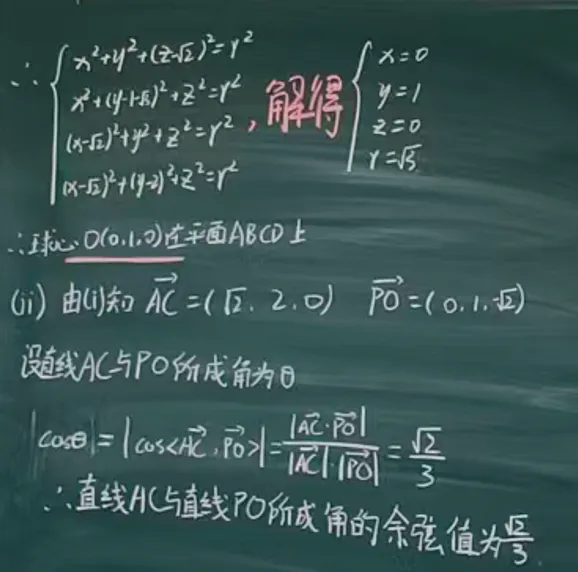 ∴ { x²+y²+(z-√2)²=r²
x²+(y-1-√3)²+z²=r²
(x-√2)²+y²+z²=r²
(x-√2)²+(y-2)²+z²=r²
, 解得 { x=0
y=1
z=0
r=√3
∴球心O(0,1,0)在平面ABCD上
(ii) 由(i)知 AC→=(√2, 2, 0) PO→=(0, 1, -√2)
设直线AC与PO所成角为θ
|cosθ|=|cos<AC→, PO→>|=|AC→·PO→|/|AC→|·|PO→|=√2/3
∴直线AC与直线PO所成角的余弦值为√2/3